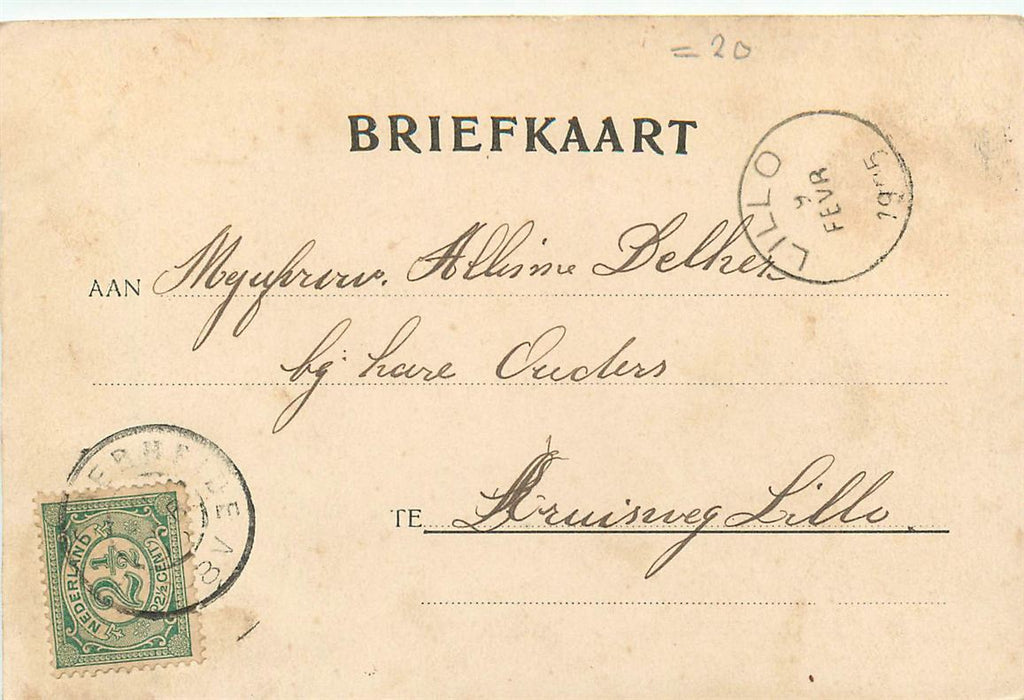 = 20
BRIEFKAART
LILLO
9
FEVR
1905
AAN Mejufvrouw. Allisine Delhez
by hare Ouders
TE Kruisweg Lillo.
ERHEIDE
8 V
NEDERLAND
2½
2½ CENT